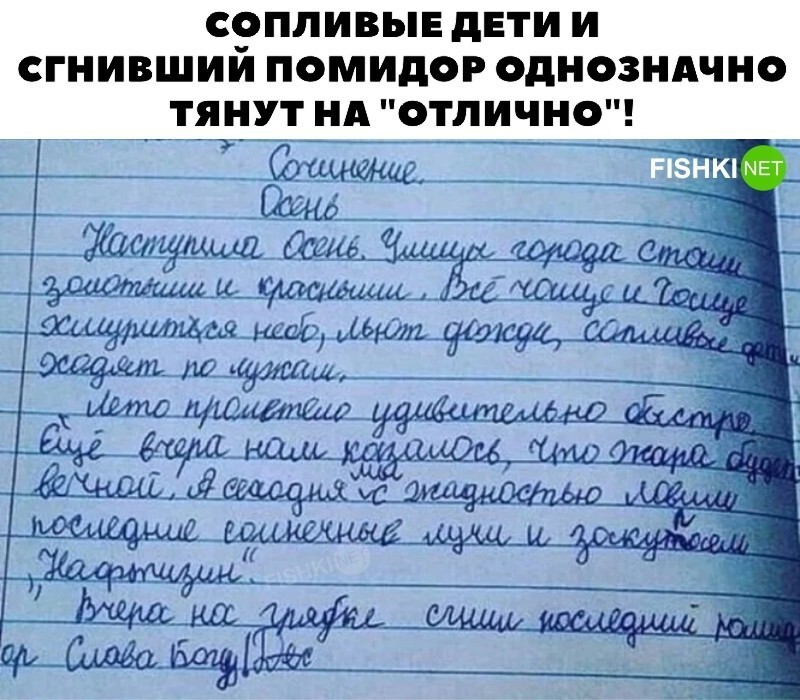 СОПЛИВЫЕ ДЕТИ И
СГНИВШИЙ ПОМИДОР ОДНОЗНАЧНО
ТЯНУТ НА "ОТЛИЧНО"!
FISHKI NET
Сочинение.
Осень
Наступила Осень. Улицы города стали
золотыми и красными. Всё чаще и чаще
хмурится небо, льют дожди, сопливые дети
ходят по лужам.
Лето пролетело удивительно быстро.
Ещё вчера нам казалось, что жара будет
вечной. А сегодня мы с жадностью ловим
последние солнечные лучи и закупаем
"Нафтизин".
Вчера на грядке сгнил последний помид
ор Слава Богу!
FISHKI NET